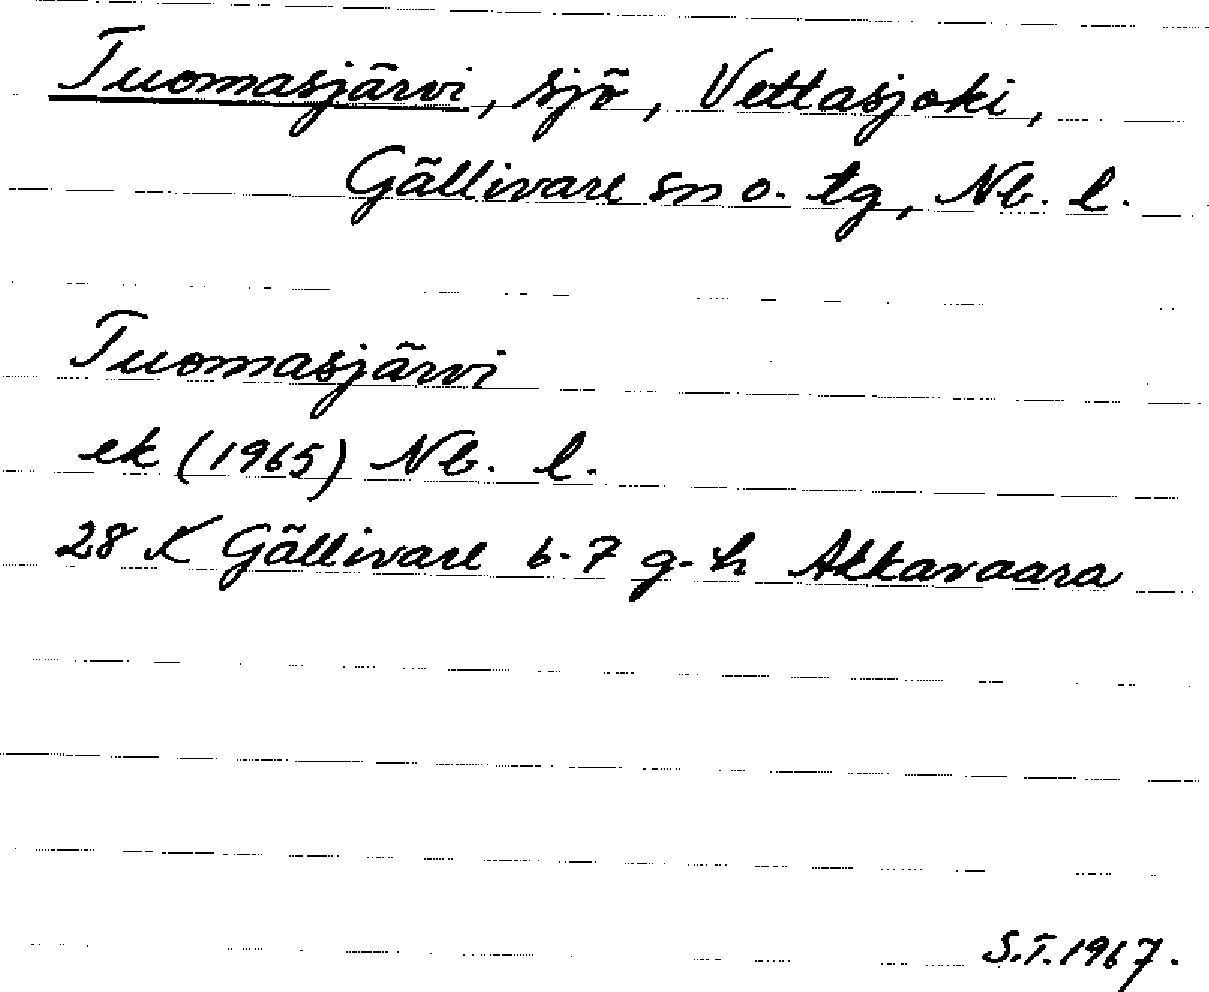 Tuomasjärvi, sjö, Vettasjoki,
Gällivare sn o. tg, Nb. l.
Tuomasjärvi
ek (1965) Nb. l.
28 K Gällivare 6-7 g-h Akkavaara
S.T. 1967.